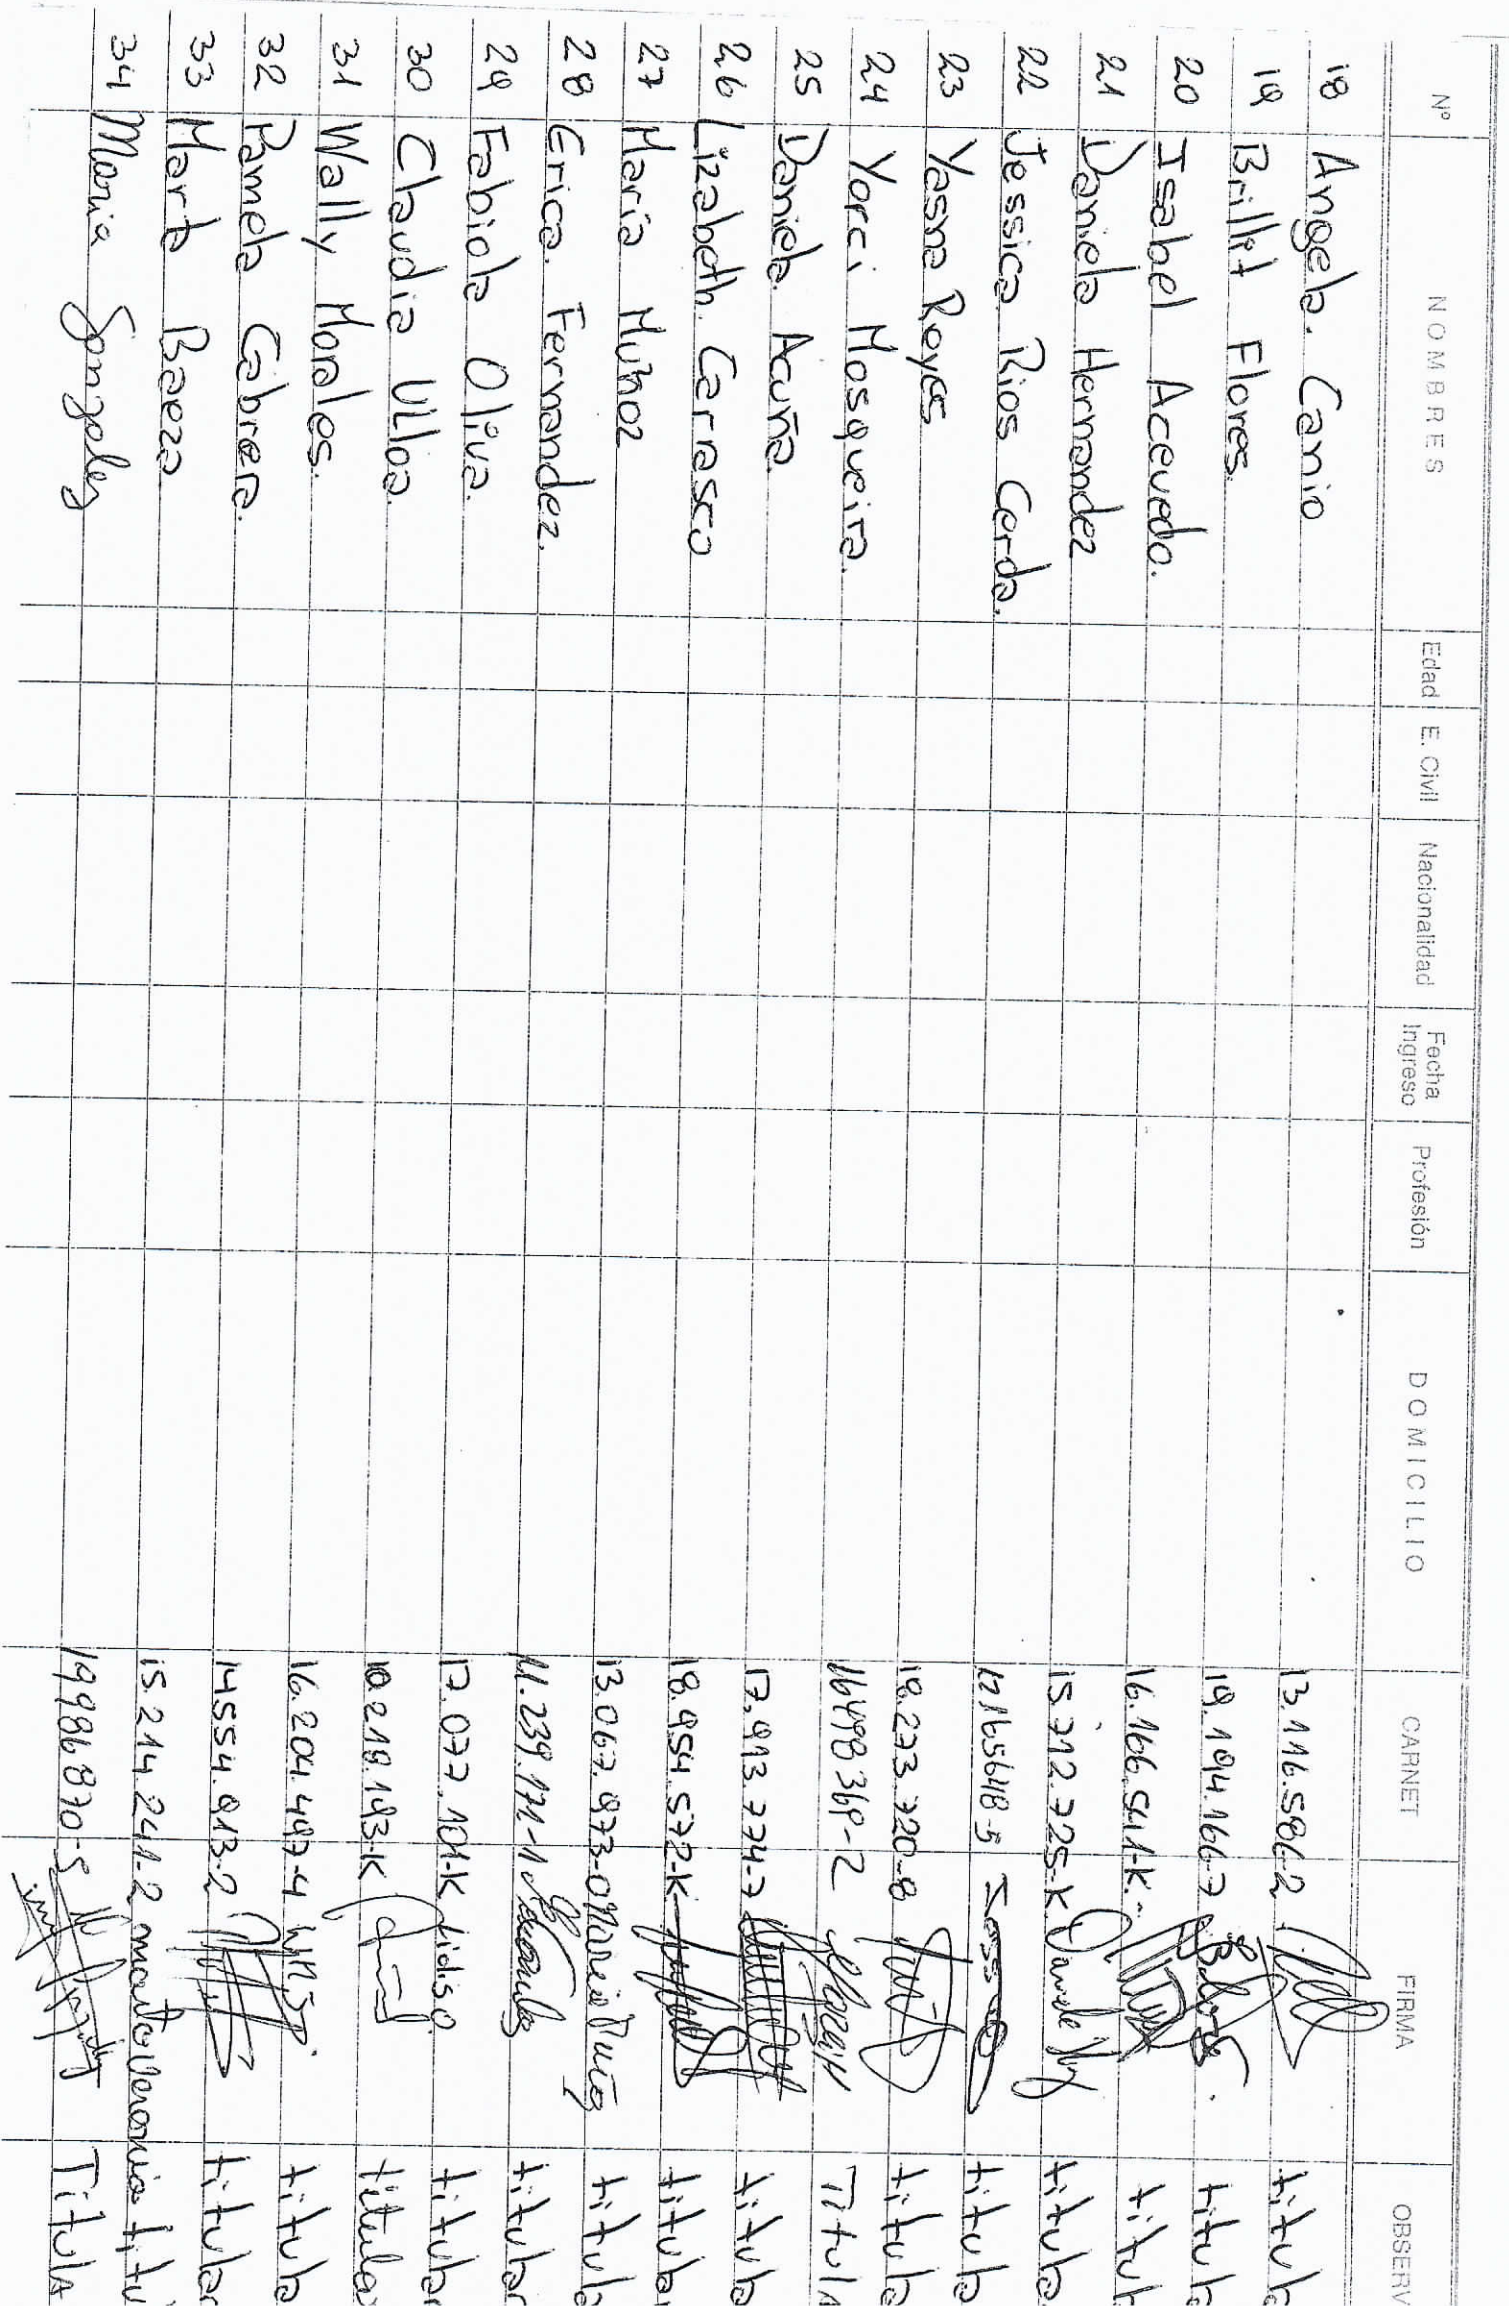 Nº NOMBRES Edad E. Civil Nacionalidad Fecha Ingreso Profesión DOMICILIO CARNET FIRMA OBSERV
18 Angela. Canio 13.116.586-2 titula
19 Brillit Flores. 19.194.166-7 titula
20 Isabel Acevedo. 16.166.541-K. titul
21 Daniela Hernandez 15.712.725-K titula
22 Jessica Rios Cerda. 12165648-5 titula
23 Yasna Reyes 18.273.720-8 titula
24 Yorci Mosqueira. 16498369-2 Titula
25 Daniela. Acuña. 17.913.774-7 titula
26 Lizabeth. Carrasco 18.954.572-K titula
27 María Muñoz 13.067.973-0 titula
28 Erica. Fernandez. 11.239.171-1 titular
29 Fabiola Oliva. 17.077.101-K titular
30 Claudia Ulloa. 10.218.193-K titular
31 Wally Morales. 16.204.497-4 titula
32 Pamela Cabrera. 14554.913-2 titular
33 Marta Baeza 15.214.241-2 titu
34 Maria Gonzalez 19986870-5 Titula